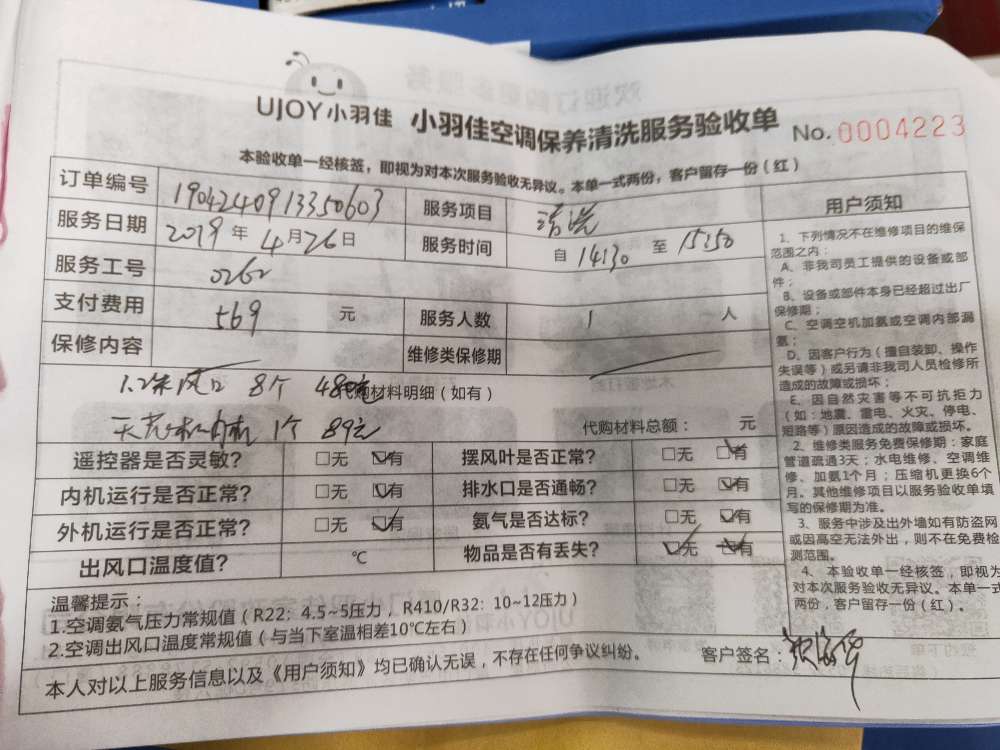 UJOY小羽佳 小羽佳空调保养清洗服务验收单 No.0004223
本验收单一经核签，即视为对本次服务验收无异议。本单一式两份，客户留存一份（红）
订单编号 190424091335060З 服务项目 清洗
服务日期 2019年4月26日 服务时间 自 14:30 至 15:50
服务工号 0262
支付费用 569 元 服务人数 1 人
保修内容 维修类保修期
1.2米风口 8个 480元
代购材料明细（如有）
天花机内机 1个 89元 代购材料总额： 元
遥控器是否灵敏？ □无 □有 摆风叶是否正常？ □无 □有
内机运行是否正常？ □无 □有 排水口是否通畅？ □无 □有
外机运行是否正常？ □无 □有 氨气是否达标？ □无 □有
出风口温度值？ ℃ 物品是否有丢失？ □无 □有
温馨提示：
1.空调氨气压力常规值（R22：4.5~5压力，R410/R32：10~12压力）
2.空调出风口温度常规值（与当下室温相差10℃左右）
本人对以上服务信息以及《用户须知》均已确认无误，不存在任何争议纠纷。 客户签名：
用户须知
1、下列情况不在维修项目的维保
范围之内：
A、非我司员工提供的设备或部
件；
B、设备或部件本身已经超过出厂
保修期；
C、空调空机加氨或空调内部漏
氨；
D、因客户行为（擅自装卸、操作
失误等）或另请非我司人员检修所
造成的故障或损坏；
E、因自然灾害等不可抗拒力
（如：地震、雷电、火灾、停电、
短路等）原因造成的故障或损坏。
2、维修类服务免费保修期：家庭
管道疏通3天；水电维修、空调维
修、加氨1个月；压缩机更换6个
月。其他维修项目以服务验收单填
写的保修期为准。
3、服务中涉及出外墙如有防盗网
或因高空无法外出，则不在免费检
测范围。
4、本验收单一经核签，即视为
对本次服务验收无异议。本单一式
两份，客户留存一份（红）。